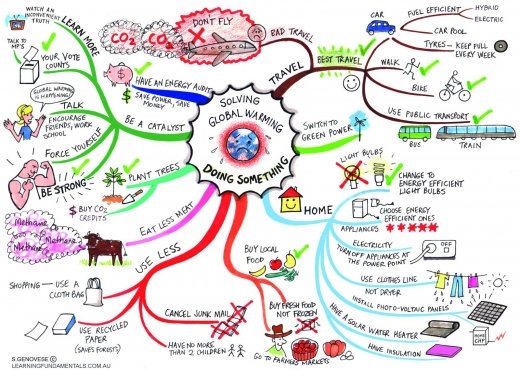 SOLVING
GLOBAL WARMING
DOING SOMETHING
DON'T FLY
CO2
CO2
BAD TRAVEL
TRAVEL
BEST TRAVEL
CAR
FUEL EFFICIENT
HYBRID
ELECTRIC
CAR POOL
TYRES - KEEP FULL
EVERY WEEK
WALK
BIKE
USE PUBLIC TRANSPORT
BUS
TRAIN
SWITCH TO
GREEN POWER
HOME
LIGHT BULBS
CHANGE TO
ENERGY EFFICIENT
LIGHT BULBS
APPLIANCES
CHOOSE ENERGY
EFFICIENT ONES
ELECTRICITY
TURN OFF APPLIANCES AT
THE POWER POINT
OFF
USE CLOTHES LINE
NOT DRYER
INSTALL PHOTO-VOLTAIC PANELS
HAVE A SOLAR WATER HEATER
HAVE INSULATION
BUY LOCAL
FOOD
BUY FRESH FOOD
NOT FROZEN
GO TO FARMERS MARKETS
USE LESS
CANCEL JUNK MAIL
HAVE NO MORE
THAN 2 CHILDREN
SHOPPING - USE A
CLOTH BAG
USE RECYCLED
PAPER
(SAVES FORESTS)
EAT LESS MEAT
Methane
Methane
Methane
PLANT TREES
$ BUY CO2
CREDITS
BE A CATALYST
LEARN MORE
WATCH AN
INCONVENIENT
TRUTH
TALK TO
MP'S
YOUR VOTE
COUNTS
TALK
GLOBAL WARMING
IS HAPPENING!
ENCOURAGE
FRIENDS, WORK
SCHOOL
FORCE YOURSELF
BE STRONG
HAVE AN ENERGY AUDIT
$ SAVE POWER, SAVE
MONEY
S.GENOVESE ©
LEARNINGFUNDAMENTALS.COM.AU